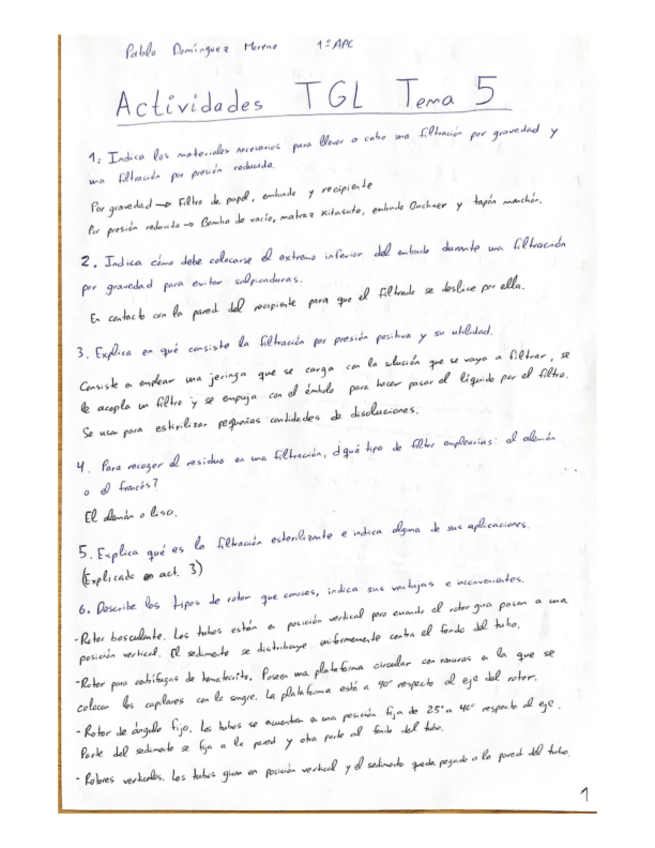 Pablo Domínguez Moreno 1º APC
Actividades TGL Tema 5
1. Indica los materiales necesarios para llevar a cabo una filtración por gravedad y
una filtración por presión reducida.
Por gravedad → Filtro de papel, embudo y recipiente
Por presión reducida → Bomba de vacío, matraz kitasato, embudo Buchner y tapón manchón.
2. Indica cómo debe colocarse el extremo inferior del embudo durante una filtración
por gravedad para evitar salpicaduras.
En contacto con la pared del recipiente para que el filtrado se deslice por ella.
3. Explica en qué consiste la filtración por presión positiva y su utilidad.
Consiste a emplear una jeringa que se carga con la solución que se vaya a filtrar, se
le acopla un filtro y se empuja con el émbolo para hacer pasar el líquido por el filtro.
Se usan para esterilizar pequeñas cantidades de disoluciones.
4. Para recoger el residuo en una filtración, ¿qué tipo de filtro emplearías: el alemán
o el francés?
El alemán o liso.
5. Explica qué es la filtración esterilizante e indica alguna de sus aplicaciones.
(Explicado en act. 3)
6. Describe los tipos de rotor que conoces, indica sus ventajas e inconvenientes.
- Rotor basculante. Los tubos están en posición vertical pero cuando el rotor gira pasan a una
posición vertical. El sedimento se distribuye uniformemente contra el fondo del tubo.
- Rotor para centrífugas de hematocrito. Poseen una plataforma circular con ranuras en la que se
colocan los capilares con la sangre. La plataforma está a 90º respecto al eje del rotor.
- Rotor de ángulo fijo. Los tubos se encuentran en una posición fija de 25º a 40º respecto al eje.
Parte del sedimento se fija a la pared y otra parte al fondo del tubo.
- Rotores verticales. Los tubos giran en posición vertical y el sedimento queda pegado a la pared del tubo.
1